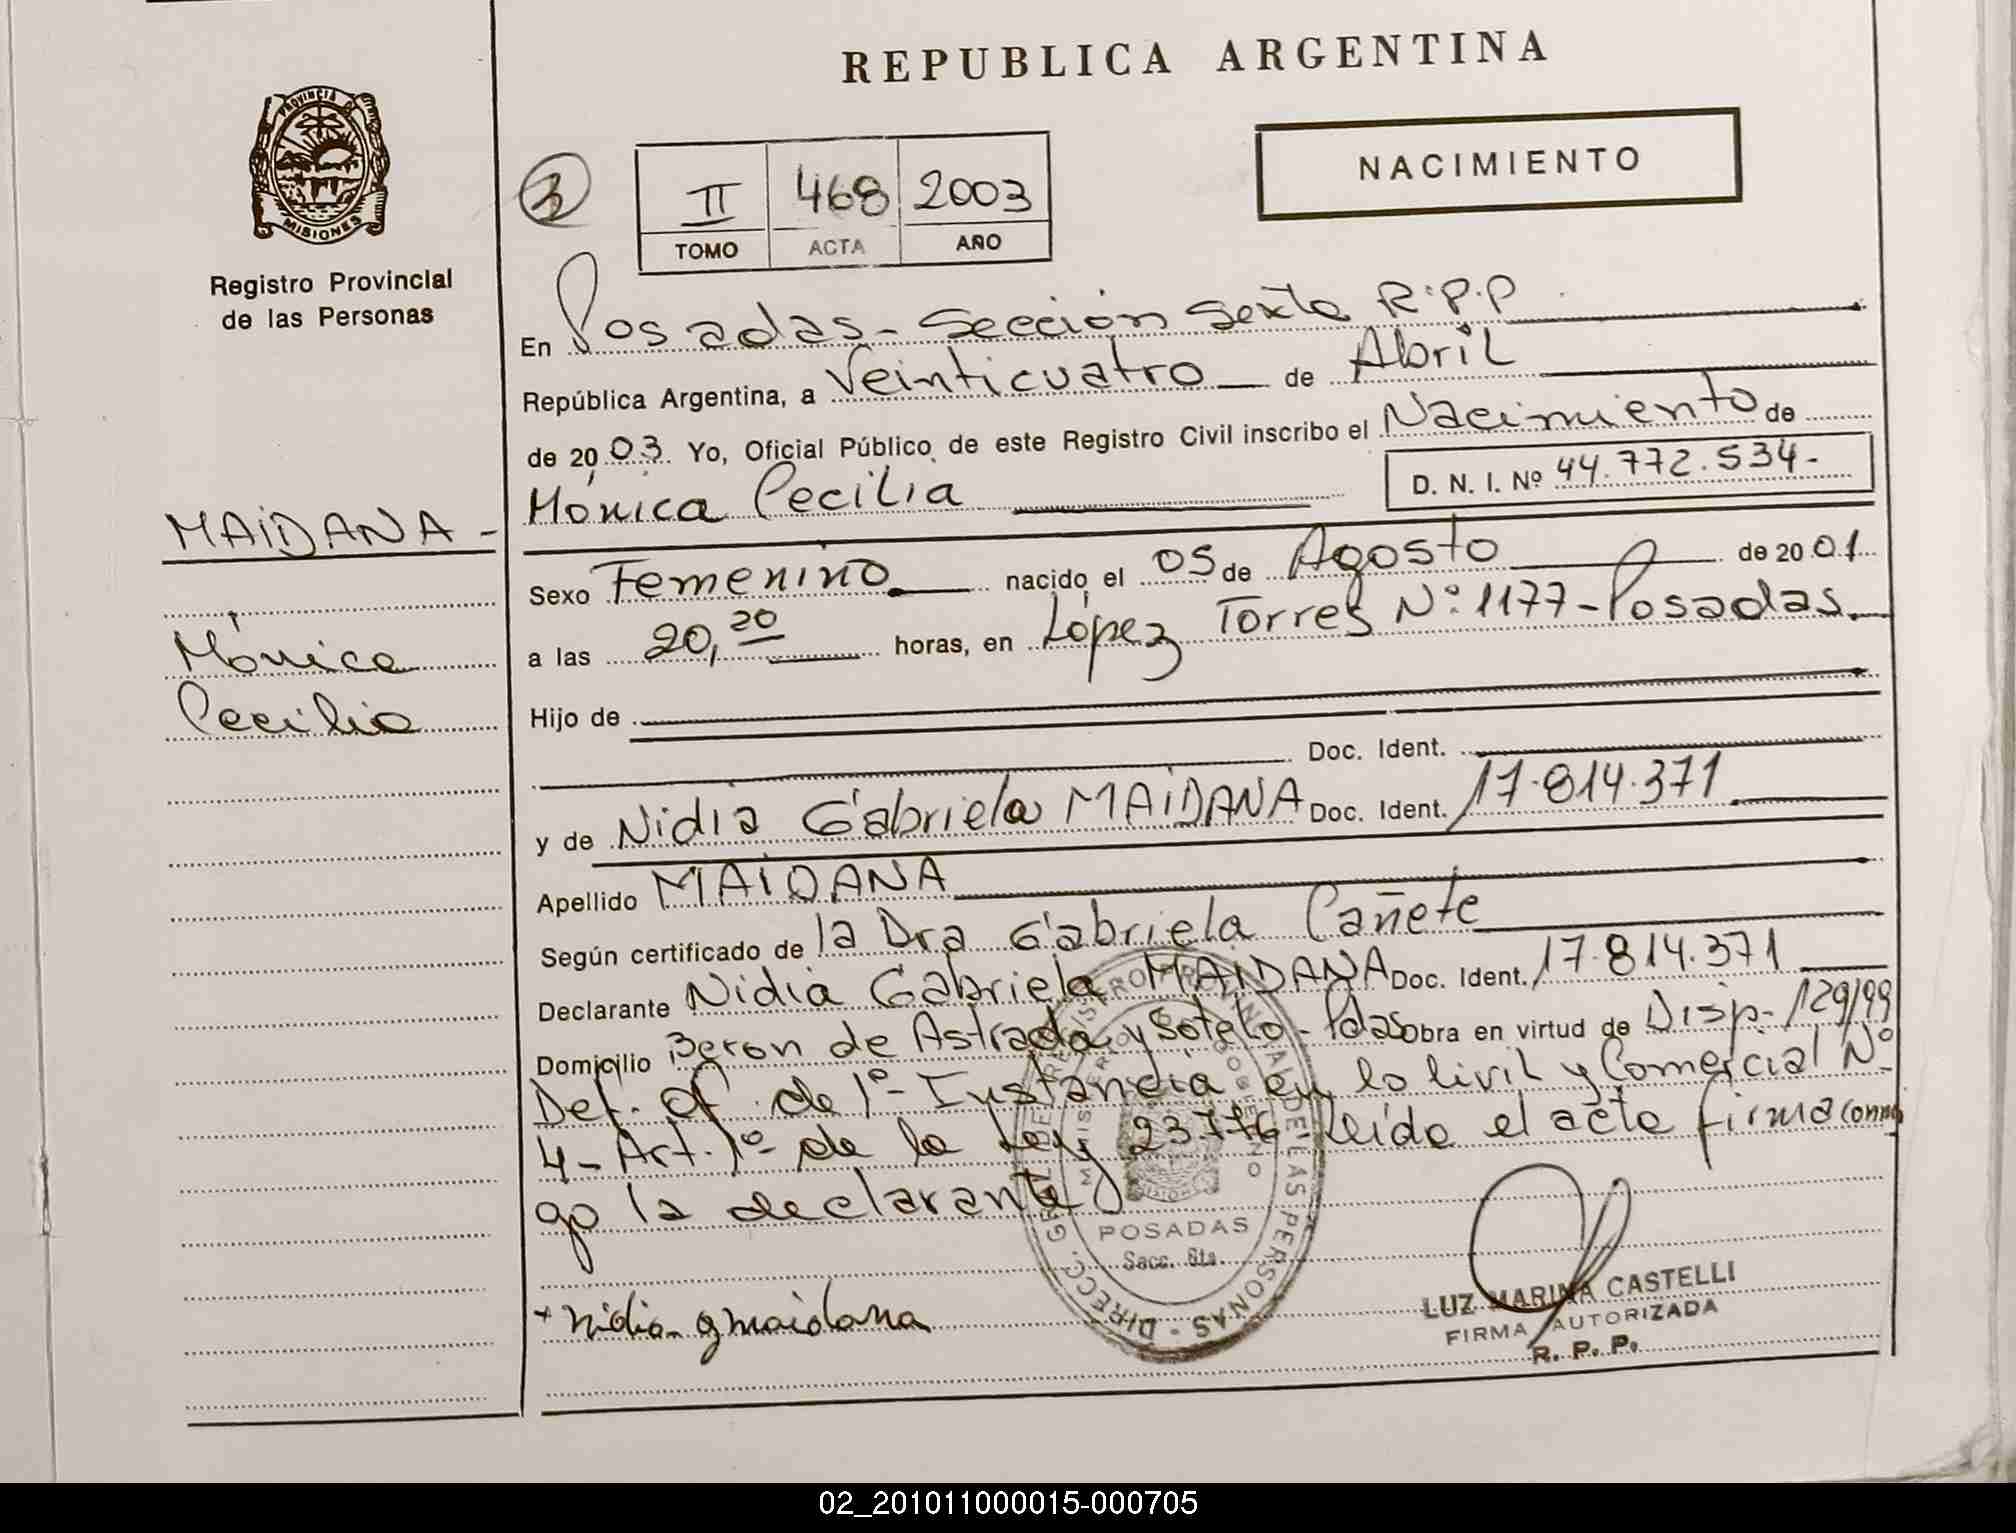 REPUBLICA ARGENTINA
PROVINCIA DE
MISIONES
Registro Provincial
de las Personas
II 468 2003
TOMO ACTA AÑO
NACIMIENTO
En Posadas - Sección Sexta R.P.P
República Argentina, a Veinticuatro de Abril
de 2003 Yo, Oficial Público de este Registro Civil inscribo el Nacimiento de
Mónica Cecilia D. N. I. Nº 44.772.534-
MAIDANA -
Mónica
Cecilia
Sexo Femenino nacido el 05 de Agosto de 2001
a las 20,20 horas, en López Torres Nº 1177 - Posadas
Hijo de
Doc. Ident.
y de Nidia Gabriela MAIDANA Doc. Ident. 17.814.371
Apellido MAIDANA
Según certificado de la Dra Gabriela Cañete
Declarante Nidia Gabriela MAIDANA Doc. Ident. 17.814.371
Domicilio Beron de Astrada y Sotelo - Pdas Obra en virtud de Disp. 129/99
Def. Of. de 1º Instancia en lo Civil y Comercial Nº
4 - Art. 1º de la Ley 23.776 - Leído el acta firma conmi
go la declarante
POSADAS
Secc. 6ta.
+ Nidia g maidana
LUZ MARINA CASTELLI
FIRMA AUTORIZADA
R. P. P.
02_201011000015-000705